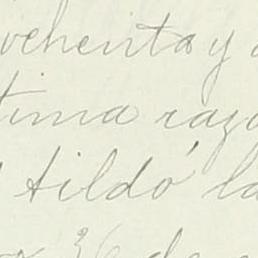 ochenta y
tima razo
tildó la
36 de